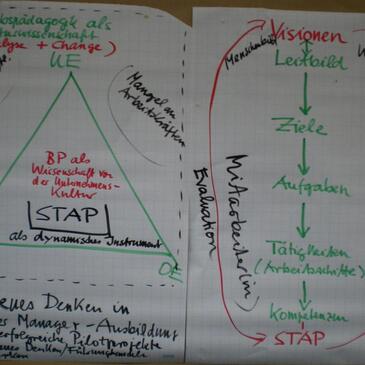 bspädagogik als
turwissenschaft
alyse + Change)
UE
Mangel an
Arbeitskräften
BP als
Wissenschaft von
der Unternehmens-
Kultur
STAP
als dynamisches Instrument
OE
neues Denken in
Manager-Ausbildung
erfolgreiche Pilotprojekte
neues Denken/Führungshandeln
Visionen
Menschenbild
Leitbild
Ziele
Aufgaben
Tätigkeiten
(Arbeitsschritte)
Kompetenzen
STAP
Mitarbeiter(in)
Evaluation